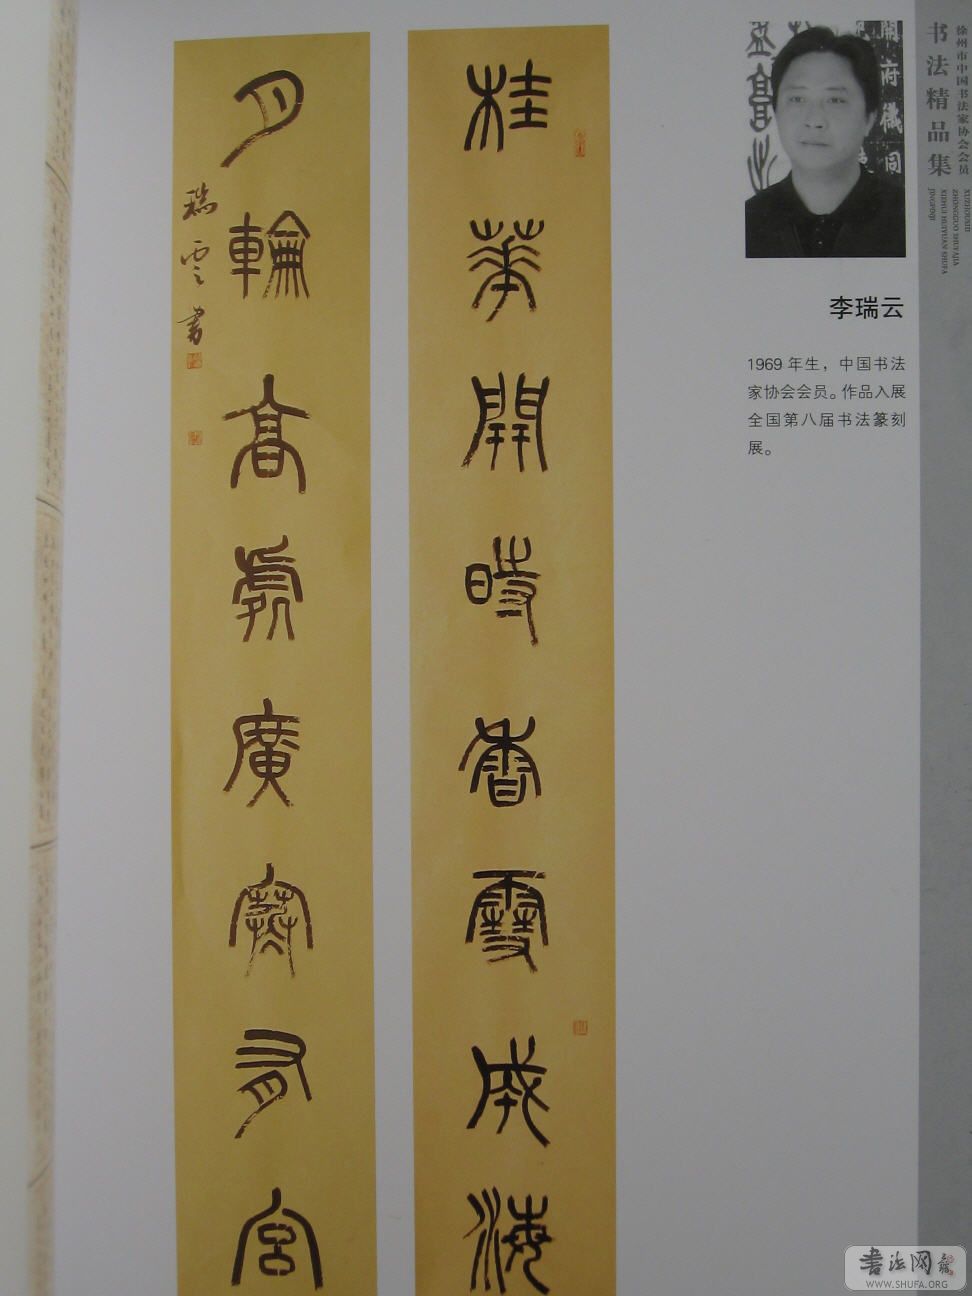 徐州市中国书法家协会会员
书法精品集
XUZHOUSHI
ZHONGGUO SHUFAJIA
XIEHUI HUIYUAN SHUFA
JINGPINJI
開府儀同
李瑞云
1969 年生，中国书法
家协会会员。作品入展
全国第八届书法篆刻
展。
桂華開時香雪成海
月輪高處廣寒有宮
瑞雲書
书法网
WWW.SHUFA.ORG